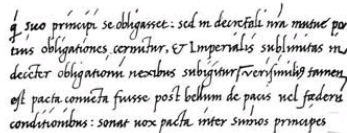 q̇ suo principi se obligasset: sed in decretali nr̄a mutuę po
tius obligationes cernūtur, & Imperialis sublimitas in,
decēter obligationū nexibus subigitur, verisimiliꝰ tamen
est pacta conuēta fuisse post bellum de pacis uel fœderis
conditionibus: sonat uox pacta inter sūmos principes